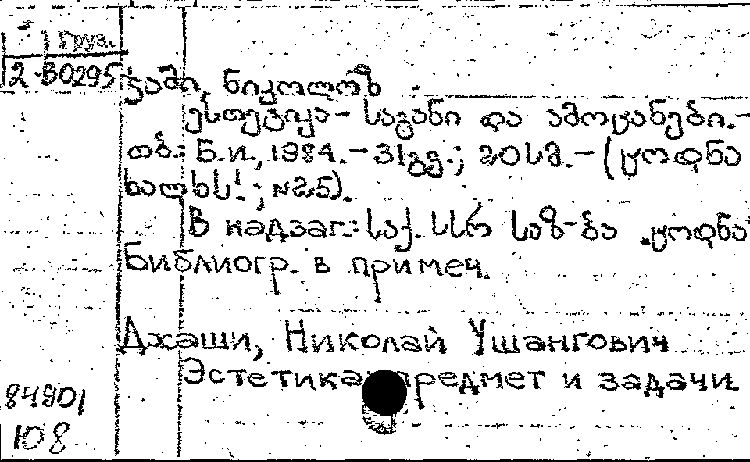 Груз.
2-В0295
ჯაში, ნიკოლოზ
ესთეტიკა – საგანი და ამოცანები.–
თბ.: Б.и., 1984.– 31 გვ.; 20 სმ.– (ცოდნა
ხალხს!; №25).
В надзаг.: საქ. სსრ საზ-ბა „ცოდნა“
Библиогр. в примеч.
Джаши, Николай Ушангович
Эстетика предмет и задачи.
84901
108